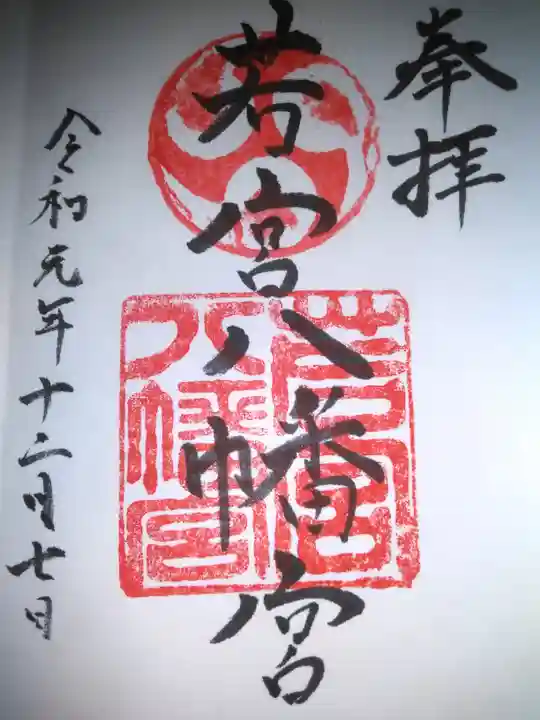 奉拝
若宮八幡宮
若宮
八幡宮
令和元年十二月七日